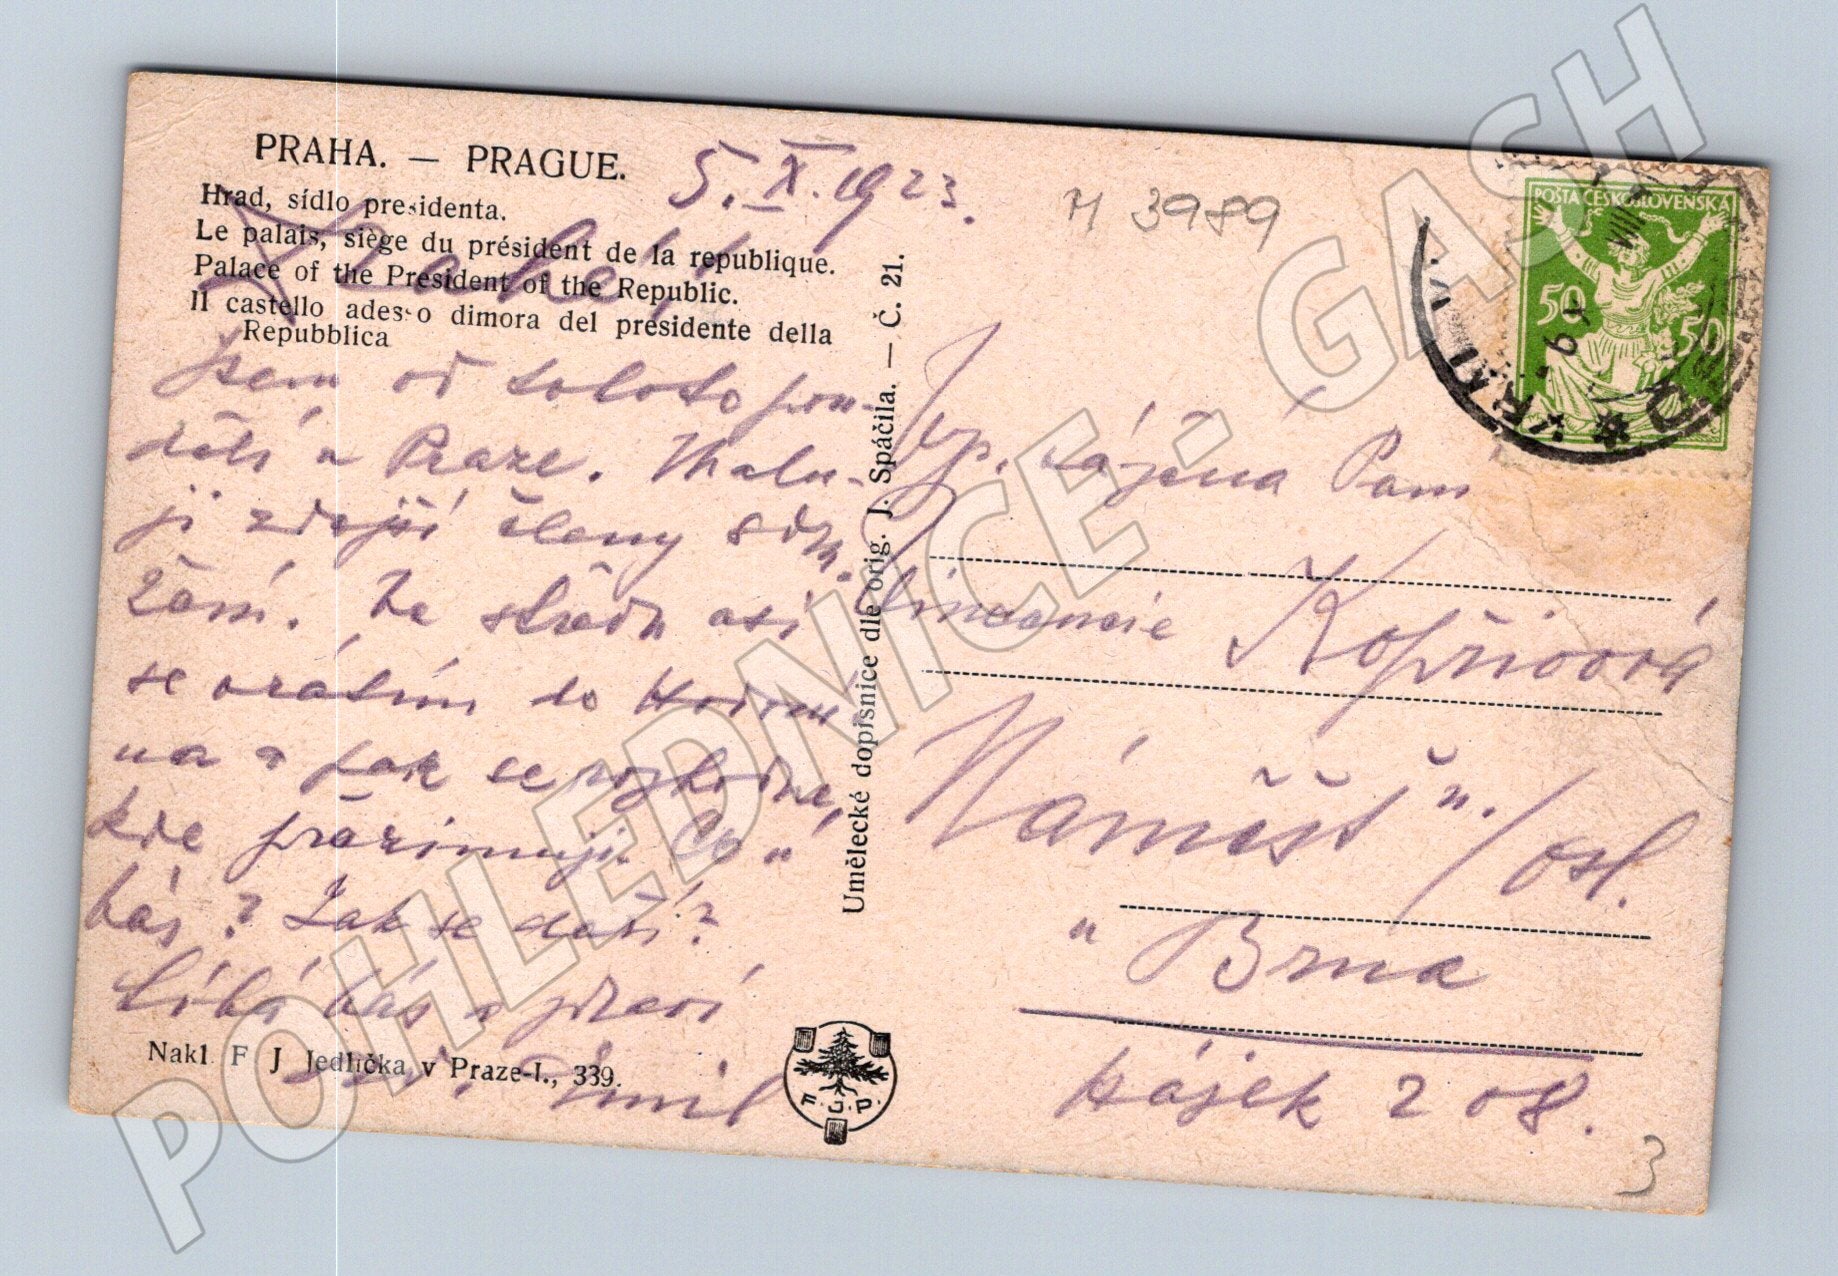 PRAHA. — PRAGUE.
Hrad, sídlo presidenta.
Le palais, siège du président de la republique.
Palace of the President of the Republic.
Il castello adesso dimora del presidente della
Repubblica
5. X. 1923.
M 3989
Drahá!
Jsem od soboto pon-
dělí v Praze. Malu-
ji zdejší členy sdru-
žení. Ve středu asi
se vrátím do Hodoní-
na a pak se rozhodne,
kde přezimuji. Co u
Vás? Jak se daří?
Líbá Vás a zdraví
Emil
Nakl. F. J. Jedlička v Praze-I., 339.
F. J. P.
Umělecké dopisnice dle orig. J. Spáčila. — Č. 21.
POŠTA ČESKOSLOVENSKÁ
50 50
Vp. vážená Paní
Kopřivová
Náměšť n./Osl.
u Brna
Hájek 208.
3
POHLEDNICE - GASH